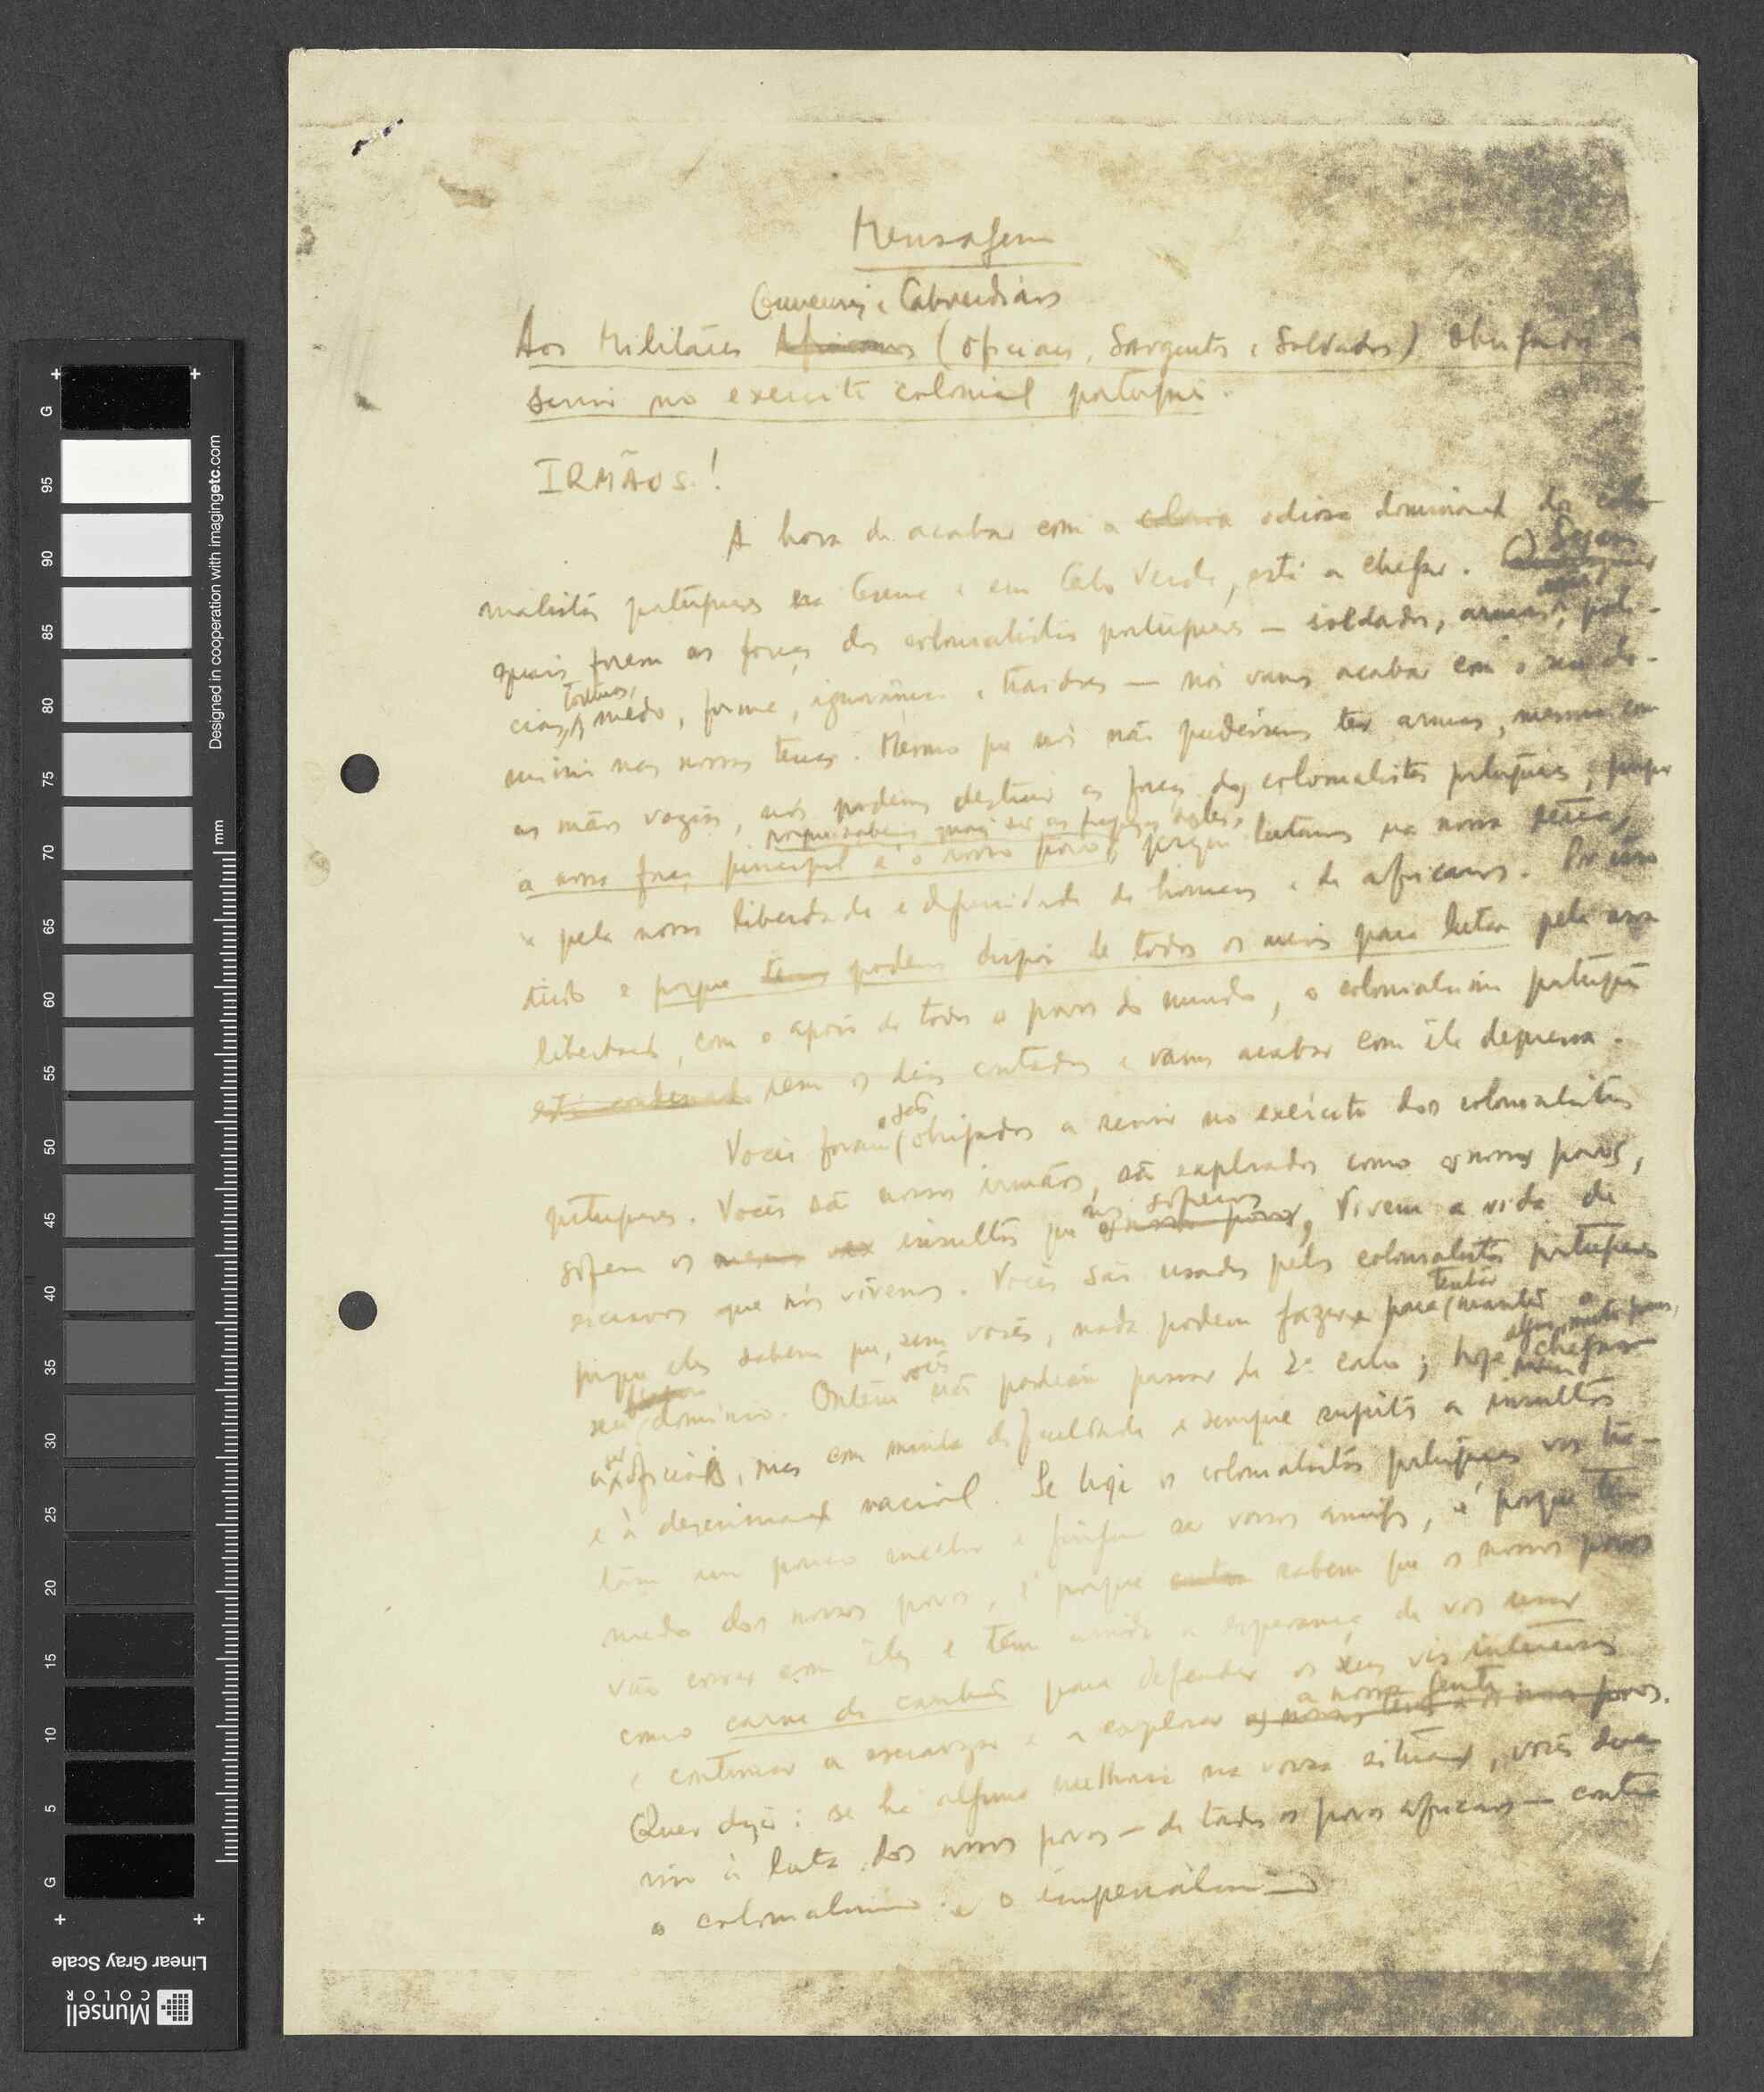 Mensagem
Guineenses e Caboverdianos
Aos Militares Africanos (Oficiais, Sargentos e Soldados) obrigados a
servir no exercito colonial português.
IRMÃOS!
A hora de acabar com a odiosa dominação dos colo-
nialistas portugueses na Guiné e em Cabo Verde, está a chegar. Sejam
quais forem as forças dos colonialistas portugueses — soldados, armas, polí-
cias, torturas, medo, fome, ignorância e traidores — nós vamos acabar com o seu do-
mínio nas nossas terras. Mesmo que nós não pudéssemos ter armas, mesmo com
as mãos vazias, nós podemos destruir as forças dos colonialistas portugueses, porque
porque sabemos quais são as fraquezas deles,
a nossa força principal é o nosso povo, porque lutamos na nossa terra,
e pela nossa liberdade e dignidade de homens e de africanos. Por isso
tudo e porque temos podemos dispor de todos os meios para lutar pela nossa
liberdade, com o apoio de todos os povos do mundo, o colonialismo português
está condenado tem os dias contados e vamos acabar com êle depressa.
Vocês foram e são obrigados a servir no exército dos colonialistas
portugueses. Vocês são nossos irmãos, são explorados como os nossos povos,
sofrem os mesmos insultos que nós sofremos os nossos povos, vivem a vida de
escravos que nós vivemos. Vocês são usados pelos colonialistas portugueses
porque eles sabem que, sem vocês, nada podem fazer para tentar manter o
seu domínio. Ontem vocês não podiam passar de 2º cabo; hoje alguns, muito poucos, chegam
a ser oficiais, mas com muita dificuldade e sempre sujeitos a insultos
e à descriminação racial. Se hoje os colonialistas portugueses vos tra-
tam um pouco melhor e fingem ser vossos amigos, é porque têm
medo dos nossos povos, é porque sabem que os nossos povos
vão correr com êles e têm ainda a esperança de vos usar
como carne de canhão para defender os seus vis interesses
e continuar a escravizar e a explorar a nossa gente os nossos povos.
Quer dizer: se há alguma melhoria na vossa situação, vocês devem-
no à luta dos nossos povos — de todos os povos africanos — contra
o colonialismo e o imperialismo